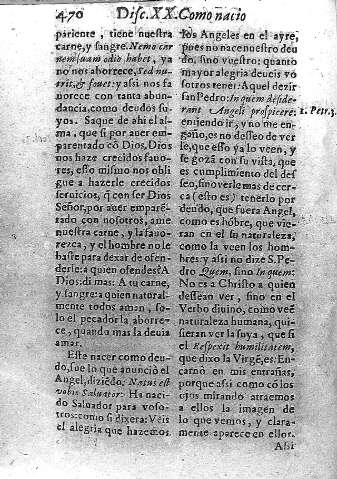 470 Disc. XX. Como nacio
pariente, tiene nuestra
carne, y sangre. Nemo car
nem suam odio habet, ya
no nos aborrece, Sed nu-
trit, & fouet: y assi nos fa
uorece con tanta abun-
dancia, como deudos su-
yos. Saque de ahi el al-
ma, que si por auer em-
parentado cõ Dios, Dios
nos haze crecidos fauo-
res, esso mismo nos obli
gue a hazerle crecidos
seruicios, q̃ con ser Dios
Señor, por auer empare-
tado con nosotros, ame
nuestra carne, y la fauo-
rezca, y el hombre no le
baste para dexar de ofen-
derle: a quien ofendes? A
Dios: di mas: A tu carne,
y sangre: a quien natural-
mente todos aman, so-
lo el pecador la aborre-
ce, quando mas la deuia
amar.
Este nacer como deu-
do, fue lo que anunciò el
Angel, diziẽdo, Natus est
vobis Saluator: Ha naci-
do Saluador para voso-
tros: como si dixera: Veis
el alegria que hazemos
los Angeles en el ayre,
pues no nace nuestro deu
do, sino vuestro: quanto
mayor alegria deueis vo
sotros tener? Aquel dezir
san Pedro: In quem deside-
rant Angeli prospicere:
1. Petr. 3.
teniendo ir, y no me en-
gaño, es no desseo de ver
le, que esso ya lo veen, y
se gozã con su vista, que
es cumplimiento del des
seo, sino verle mas de cer-
ca (esto es) tenerlo por
deudo, que fuera Angel,
como es hõbre, que vie-
ran en el su naturaleza,
como la veen los hom-
bres: y assi no dize S. Pe-
dro Quem, sino In quem:
No es a Christo a quien
dessean ver, sino en el
Verbo diuino, como veẽ
naturaleza humana, qui-
sieran ver la suya, que si
el Respexit humilitatem,
que dixo la Virgẽ, es: En-
carnó en mis entrañas,
porque assi como cõ los
ojos mirando atraemos
a ellos la imagen de
lo que vemos, y clara-
mente aparece en ellos.
Assi